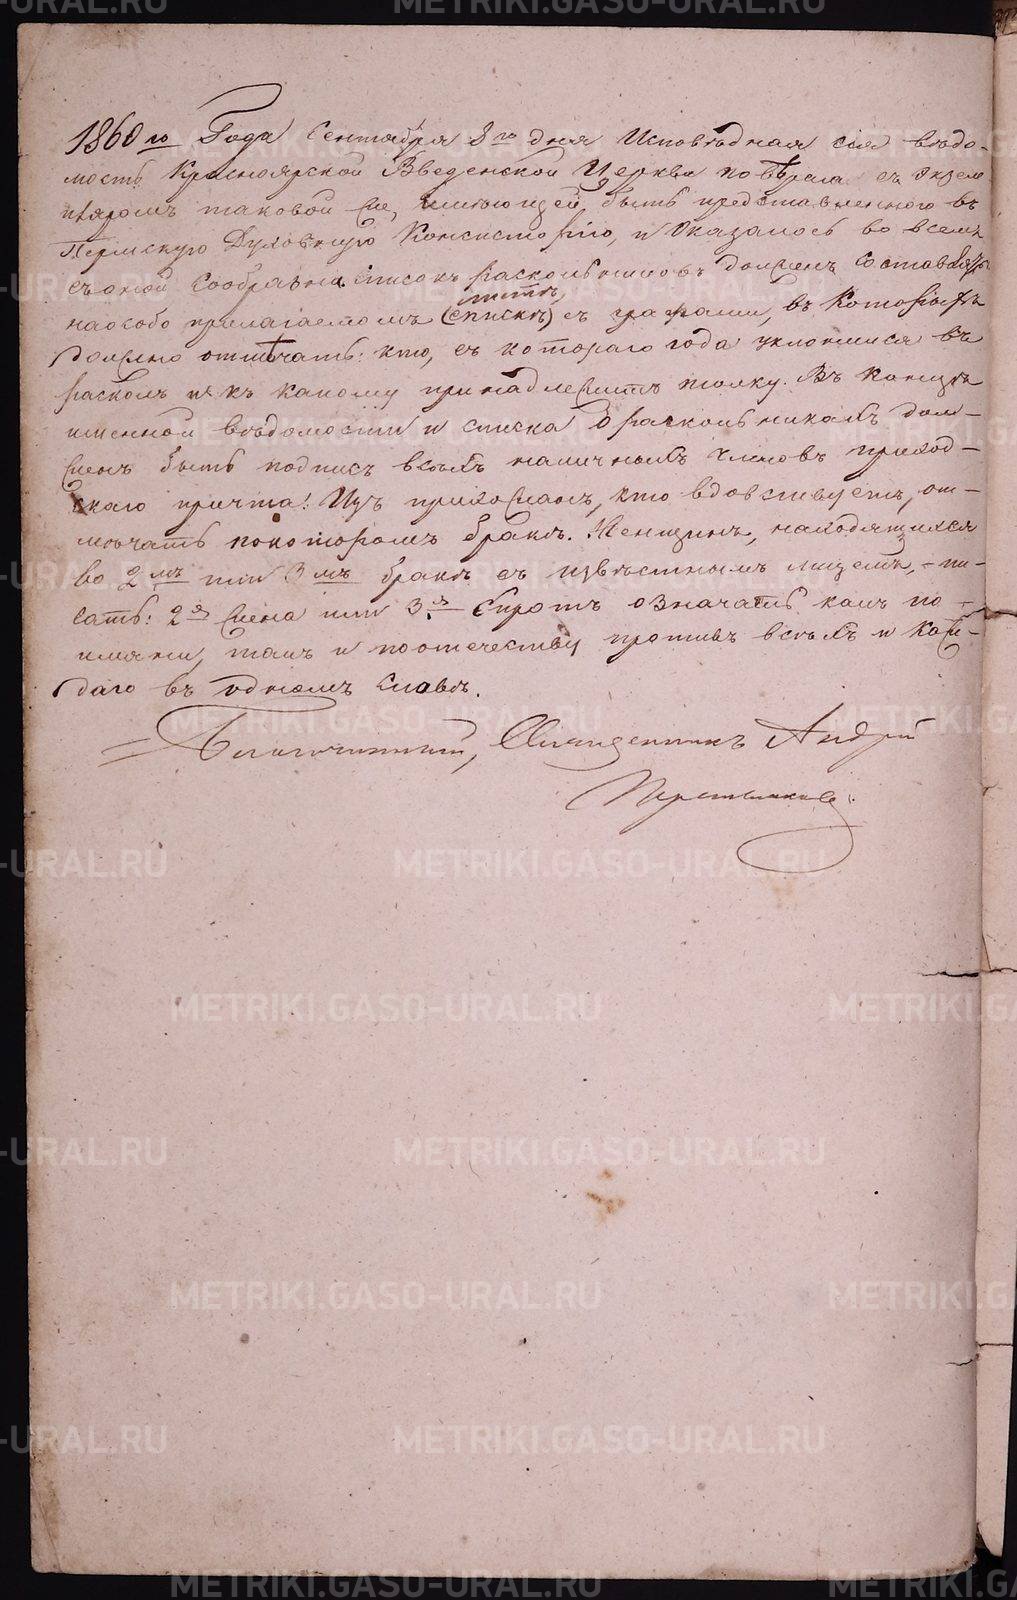 1860го Года Сентября 8го дня Исповѣдная сія вѣдо-
мость Красноярской Введенской Церкви повѣряна съ экзем
пляромъ таковой же, имѣющей быть представленною въ
Пермскую Духовную Консисторію, и оказалось во всемъ
съ оной сообразна. Списокъ раскольниковъ долженъ составлять
наособо прилагаемомъ (спискѣ) листѣ, съ графами, въ которыхъ
должно отмѣчать: кто, съ котораго года уклонился въ
расколъ и къ какому принадлежитъ толку. Въ концѣ
именной вѣдомости и списка о раскольникахъ дол-
женъ быть подписъ всѣхъ наличныхъ членовъ приход-
скаго причта! Изъ прихожанъ, кто вдовствуетъ, от-
мѣчать покоторомъ бракѣ. Женщинъ, находящихся
во 2мъ или 3мъ бракѣ съ извѣстнымъ лицемъ, - пи-
сать: 2я жена или 3я. Сиротъ означать какъ по-
имяни, такъ и поотечеству противъ всѣхъ и каж-
даго въ одномъ словѣ.
Благочинный, Священникъ Андрей
METRIKI.GASO-URAL.RU